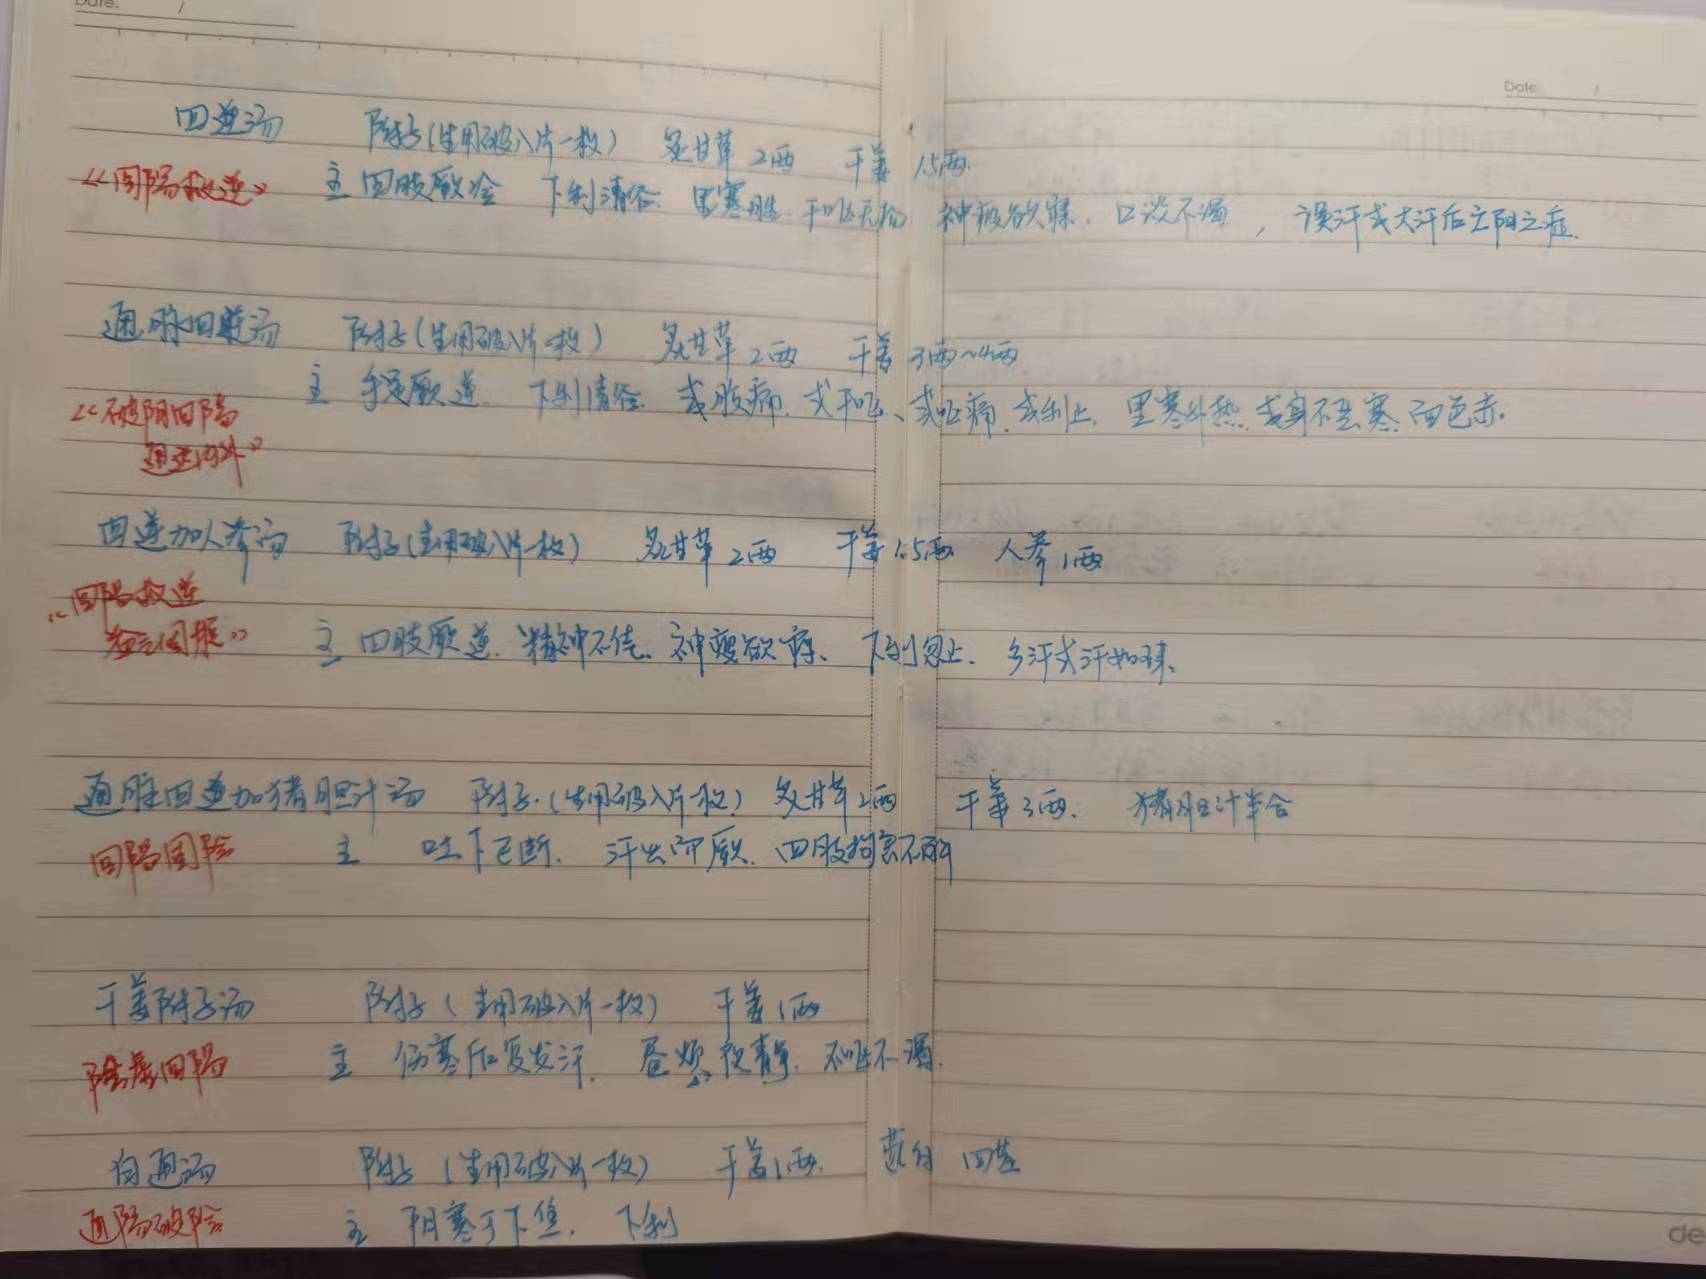 Date. /
Date /
四逆汤 附子(生用破八片一枚) 炙甘草2两 干姜1.5两
《回阳救逆》 主 四肢厥冷 下利清谷. 里寒胜. 干呕无物 神疲欲寐. 口淡不渴, 误汗或大汗后亡阳之症.
通脉四逆汤 附子(生用破八片一枚) 炙甘草2两 干姜3两~4两
主 手足厥逆 下利清谷. 或腹痛. 或干呕、或咽痛. 或利止. 里寒外热. 或身不恶寒. 面色赤.
《破阴回阳
通达内外》
四逆加人参汤 附子(生用破八片一枚) 炙甘草2两 干姜1.5两 人参1两
《回阳救逆
益元固脱》 主 四肢厥逆. 精神不佳. 神疲欲寐、下利忽止. 多汗或汗如珠.
通脉四逆加猪胆汁汤 附子.(生用破八片一枚) 炙甘草2两 干姜3两. 猪胆汁半合
回阳固阴 主 吐下已断. 汗出而厥. 四肢拘急不解
干姜附子汤 附子(生用破八片一枚) 干姜1两
除. 回阳 主 伤寒后复发汗. 昼烦夜静. 不呕不渴.
白通汤 附子(生用破八片一枚) 干姜1两. 葱白 四茎
通阳破阴 主 阴寒于下焦. 下利
de